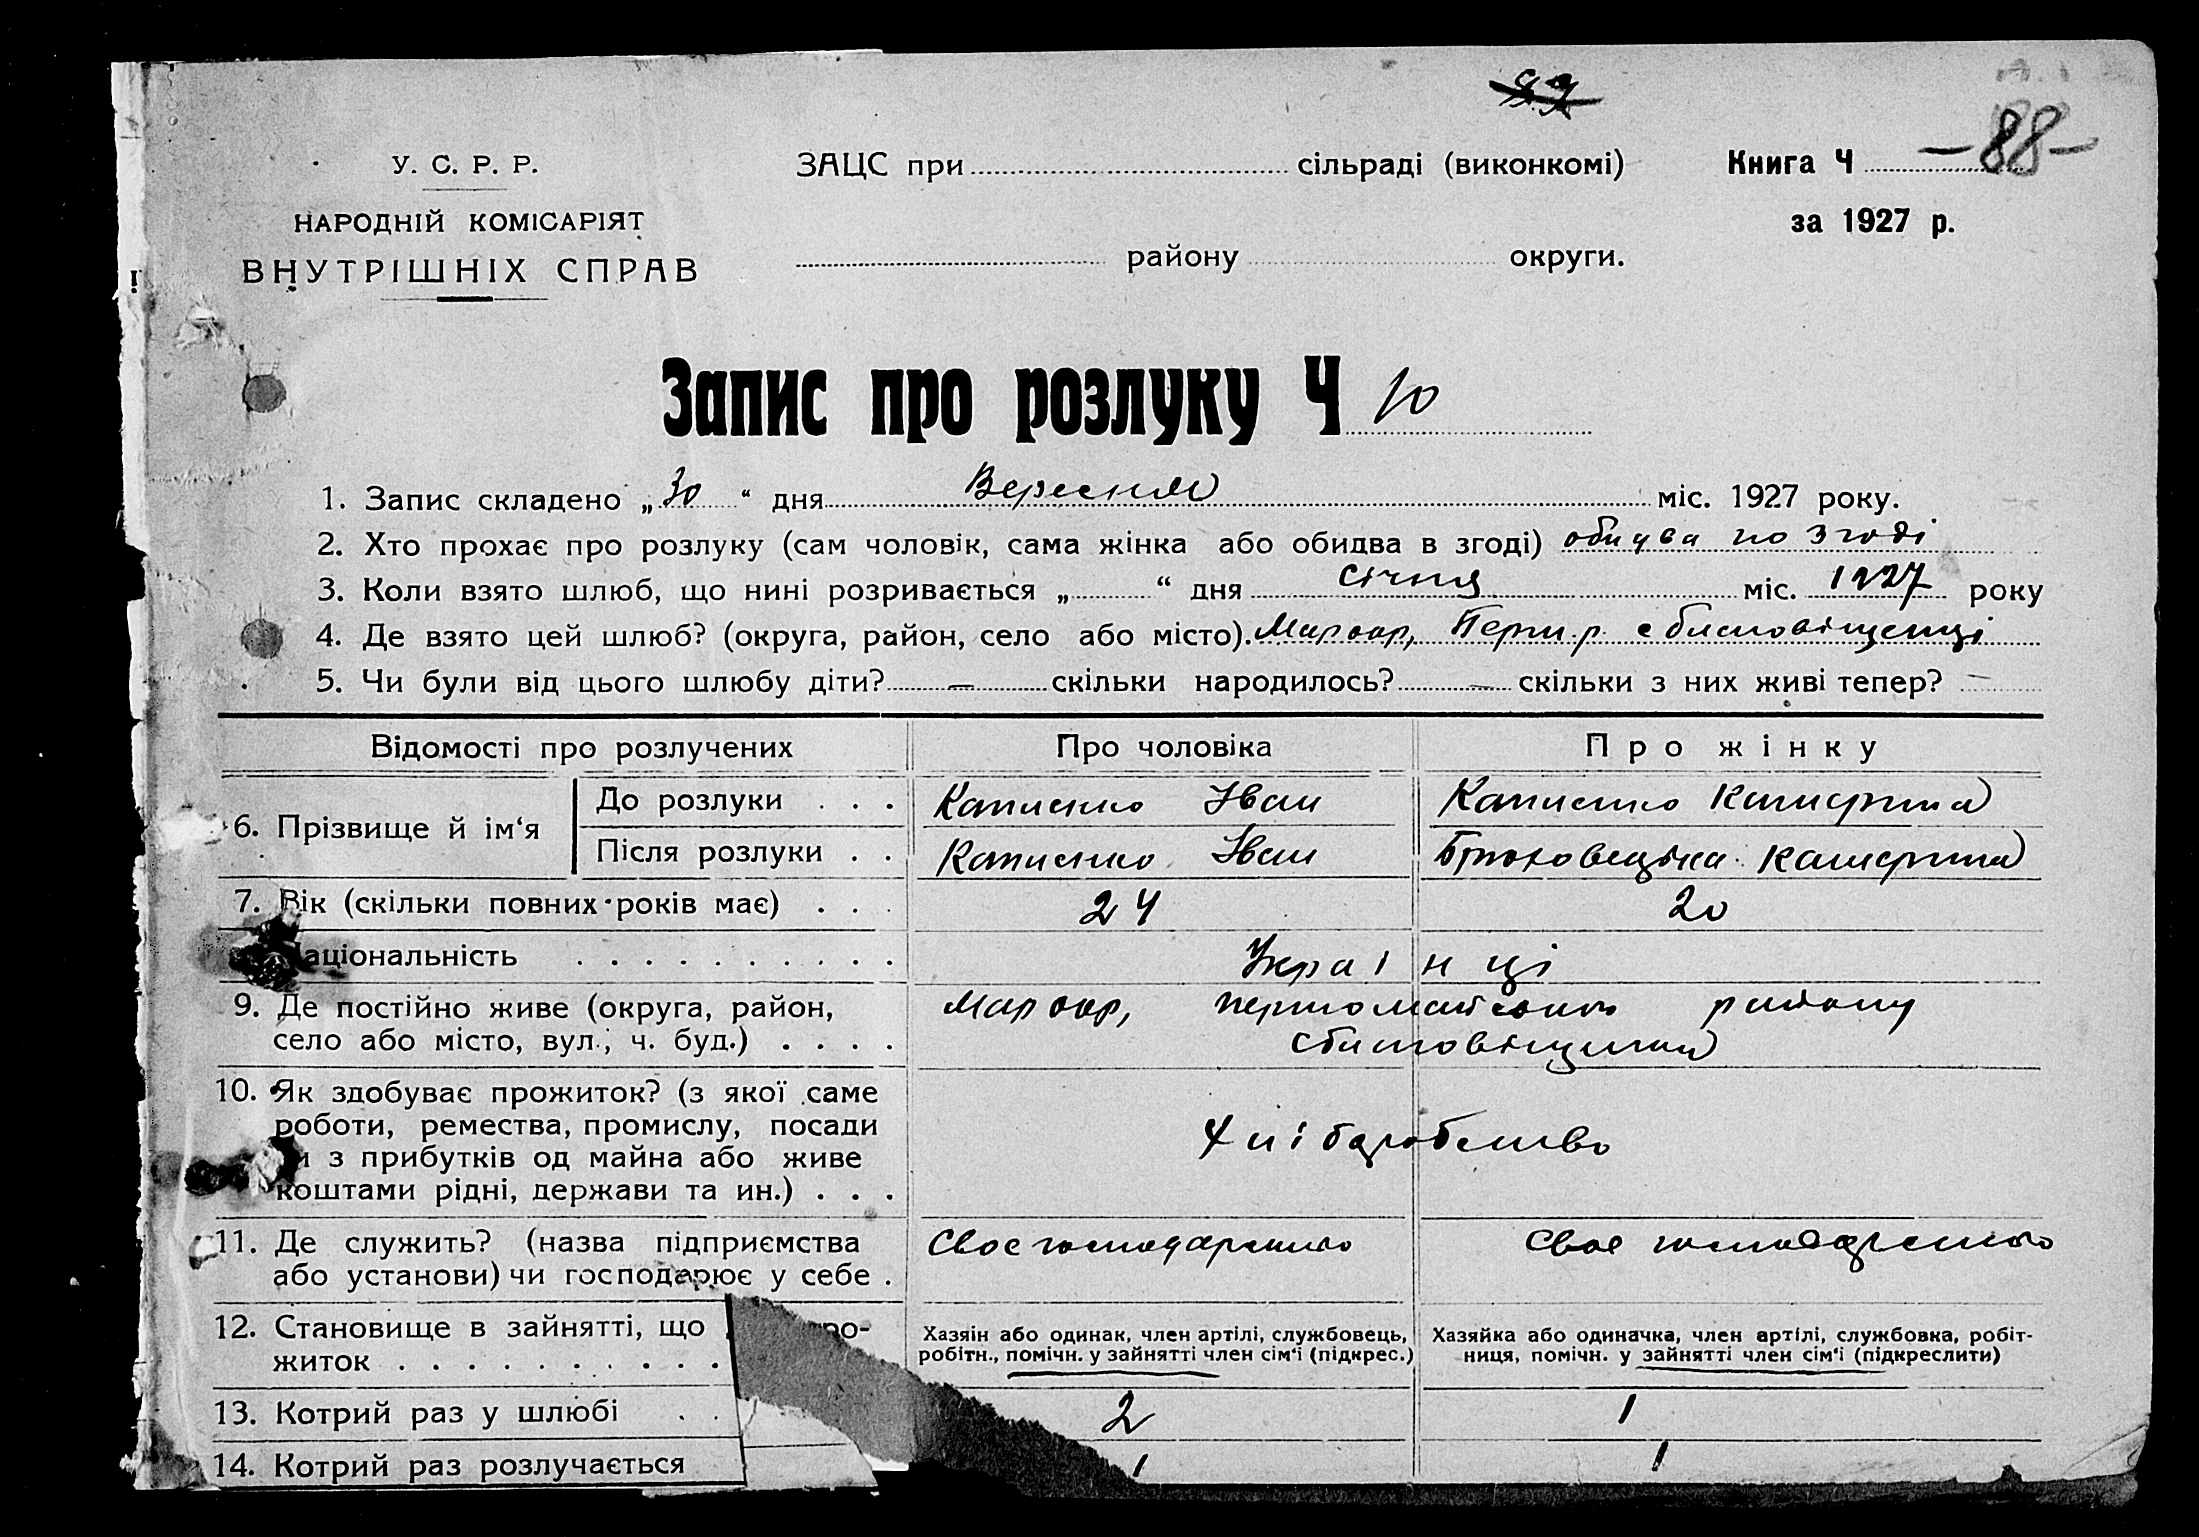 87
-88-
У. С. Р. Р.
НАРОДНІЙ КОМІСАРІЯТ
ВНУТРІШНІХ СПРАВ
ЗАЦС при сільраді (виконкомі)
району округи.
Книга Ч
за 1927 р.
Запис про розлуку Ч 10
1. Запис складено „ 30 “ дня Вересня міс. 1927 року.
2. Хто прохає про розлуку (сам чоловік, сама жінка або обидва в згоді) обидва по згоді
3. Коли взято шлюб, що нині розривається „ “ дня січня міс. 1927 року
4. Де взято цей шлюб? (округа, район, село або місто). Мар окр, Перш. р.
5. Чи були від цього шлюбу діти? — скільки народилось? — скільки з них живі тепер? —
Відомості про розлучених Про чоловіка Про жінку
6. Прізвище й ім‘я
До розлуки . . . Іван Катерина
Після розлуки . . Іван Катерина
7. Вік (скільки повних років має) . . . 24 20
Національність . . . . . . . . . . Украінці
9. Де постійно живе (округа, район, Мар окр, першомайського району
село або місто, вул., ч. буд.) . . . .
10. Як здобуває прожиток? (з якої саме
роботи, ремества, промислу, посади
чи з прибутків од майна або живе Хліборобство
коштами рідні, держави та ин.) . . .
11. Де служить? (назва підприємства Своє господарство Своє господарство
або установи) чи господарює у себе .
12. Становище в зайнятті, що ро-
житок . . . . . . . . . .
Хазяін або одинак, член артілі, службовець,
робітн., помічн. у зайнятті член сім‘ї (підкрес.)
Хазяйка або одиначка, член артілі, службовка, робіт-
ниця, помічн. у зайнятті член сім‘ї (підкреслити)
13. Котрий раз у шлюбі . . 2 1
14. Котрий раз розлучається 1 1